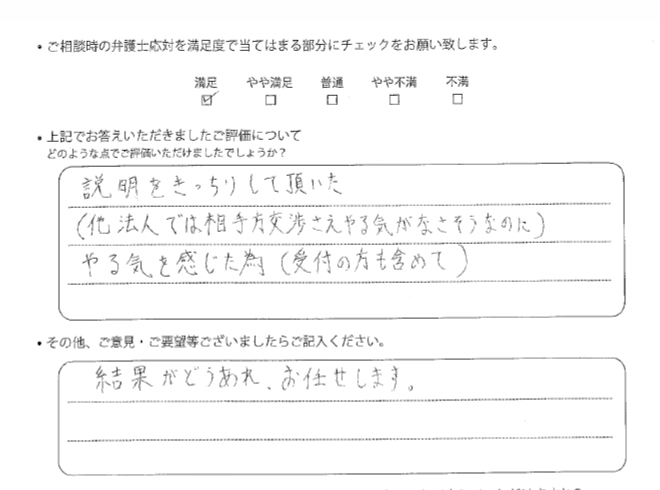 ・ご相談時の弁護士応対を満足度で当てはまる部分にチェックをお願い致します。
満足 やや満足 普通 やや不満 不満
☑ □ □ □ □
・上記でお答えいただきましたご評価について
どのような点でご評価いただけましたでしょうか？
説明をきっちりして頂いた
(他法人では相手方交渉さえやる気がなさそうなのに)
やる気を感じた為(受付の方も含めて)
・その他、ご意見・ご要望等ございましたらご記入ください。
結果がどうあれ、お任せします。